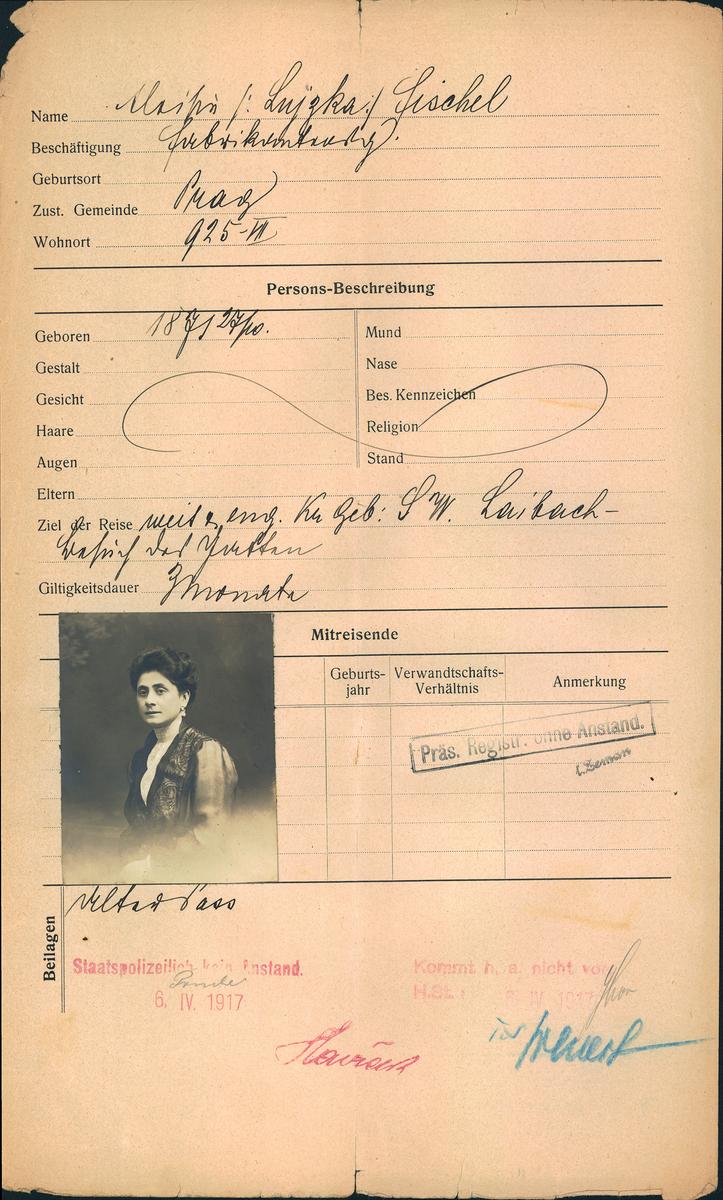 Name Aloisie /: Lujzka :/ Fischel
Beschäftigung Fabrikantensg.
Geburtsort
Zust. Gemeinde Prag
Wohnort 925-VII
Persons-Beschreibung
Geboren 1871 27/10.
Gestalt
Gesicht
Haare
Augen
Mund
Nase
Bes. Kennzeichen
Religion
Stand
Eltern
Ziel der Reise weit. & eng. Kr Geb: S W. Laibach-
Besuch des Gatten
Giltigkeitsdauer 3 Monate
Mitreisende
Geburts-
jahr
Verwandtschafts-
Verhältnis
Anmerkung
Präs. Registr. ohne Anstand.
Beilagen
Alter Pass
Staatspolizeilich kein Anstand.
6. IV. 1917
Kommt h. a. nicht vor
H.St. 6. IV. 1917